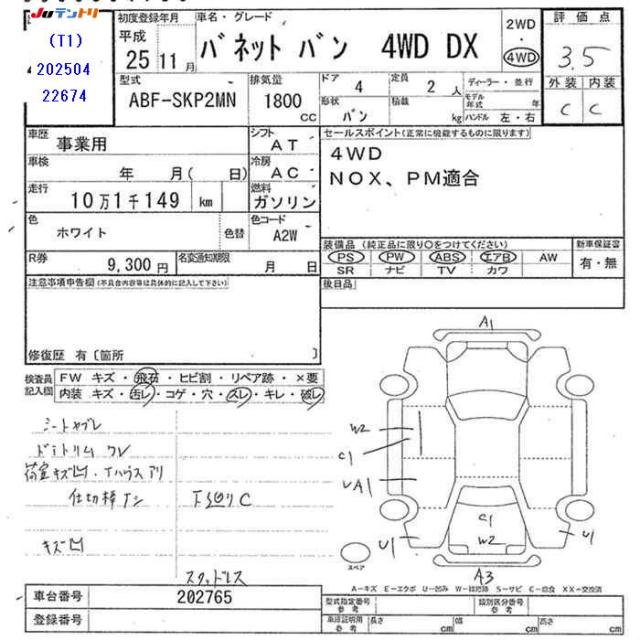 JUテントリ
(T1)
202504
22674
初度登録年月
平成
25 11 月
車名・グレード
バネット バン 4WD DX
2WD
・
4WD
評価点
3.5
外装 内装
C C
型式
ABF-SKP2MN
排気量
1800
CC
ドア
4
定員
2 人
ディーラー・並行
モデル年式 年
形状
バン
積載
kg
ハンドル 左・右
車歴
事業用
シフト
AT
セールスポイント(正常に機能するものに限ります)
4WD
NOX、PM適合
車検
年 月( 日)
冷房
AC
走行
10万1千149 km
燃料
ガソリン
色
ホワイト
色替
色コード
A2W
装備品(純正品に限り○をつけてください)
PS PW ABS エアB AW
SR ナビ TV カワ
新車保証書
有・無
R券
9,300円
名変通知期限
月 日
後日品
注意事項申告欄(不具合内容等は具体的に記入して下さい)
修復歴 有〔箇所 〕
検査員
記入欄
FW キズ・飛石・ヒビ割・リペア跡・×要
内装 キズ・汚レ・コゲ・穴・スレ・キレ・破レ
シートヤブレ
荷室キズ凹・Tハウスアリ
仕切棒ナシ
下回りC
キズ凹
スタッドレス
A1
W2
C1
UA1
C1
W2
U1
U1
A3
スペア
車台番号
202765
登録番号
A-キズ E-エクボ U-凹み W-補修跡 S-サビ C-腐食 XX-交換済
型式指定番号
参考
類別区分番号
参考
車庫証明用
参考
長さ cm
幅 cm
高さ cm